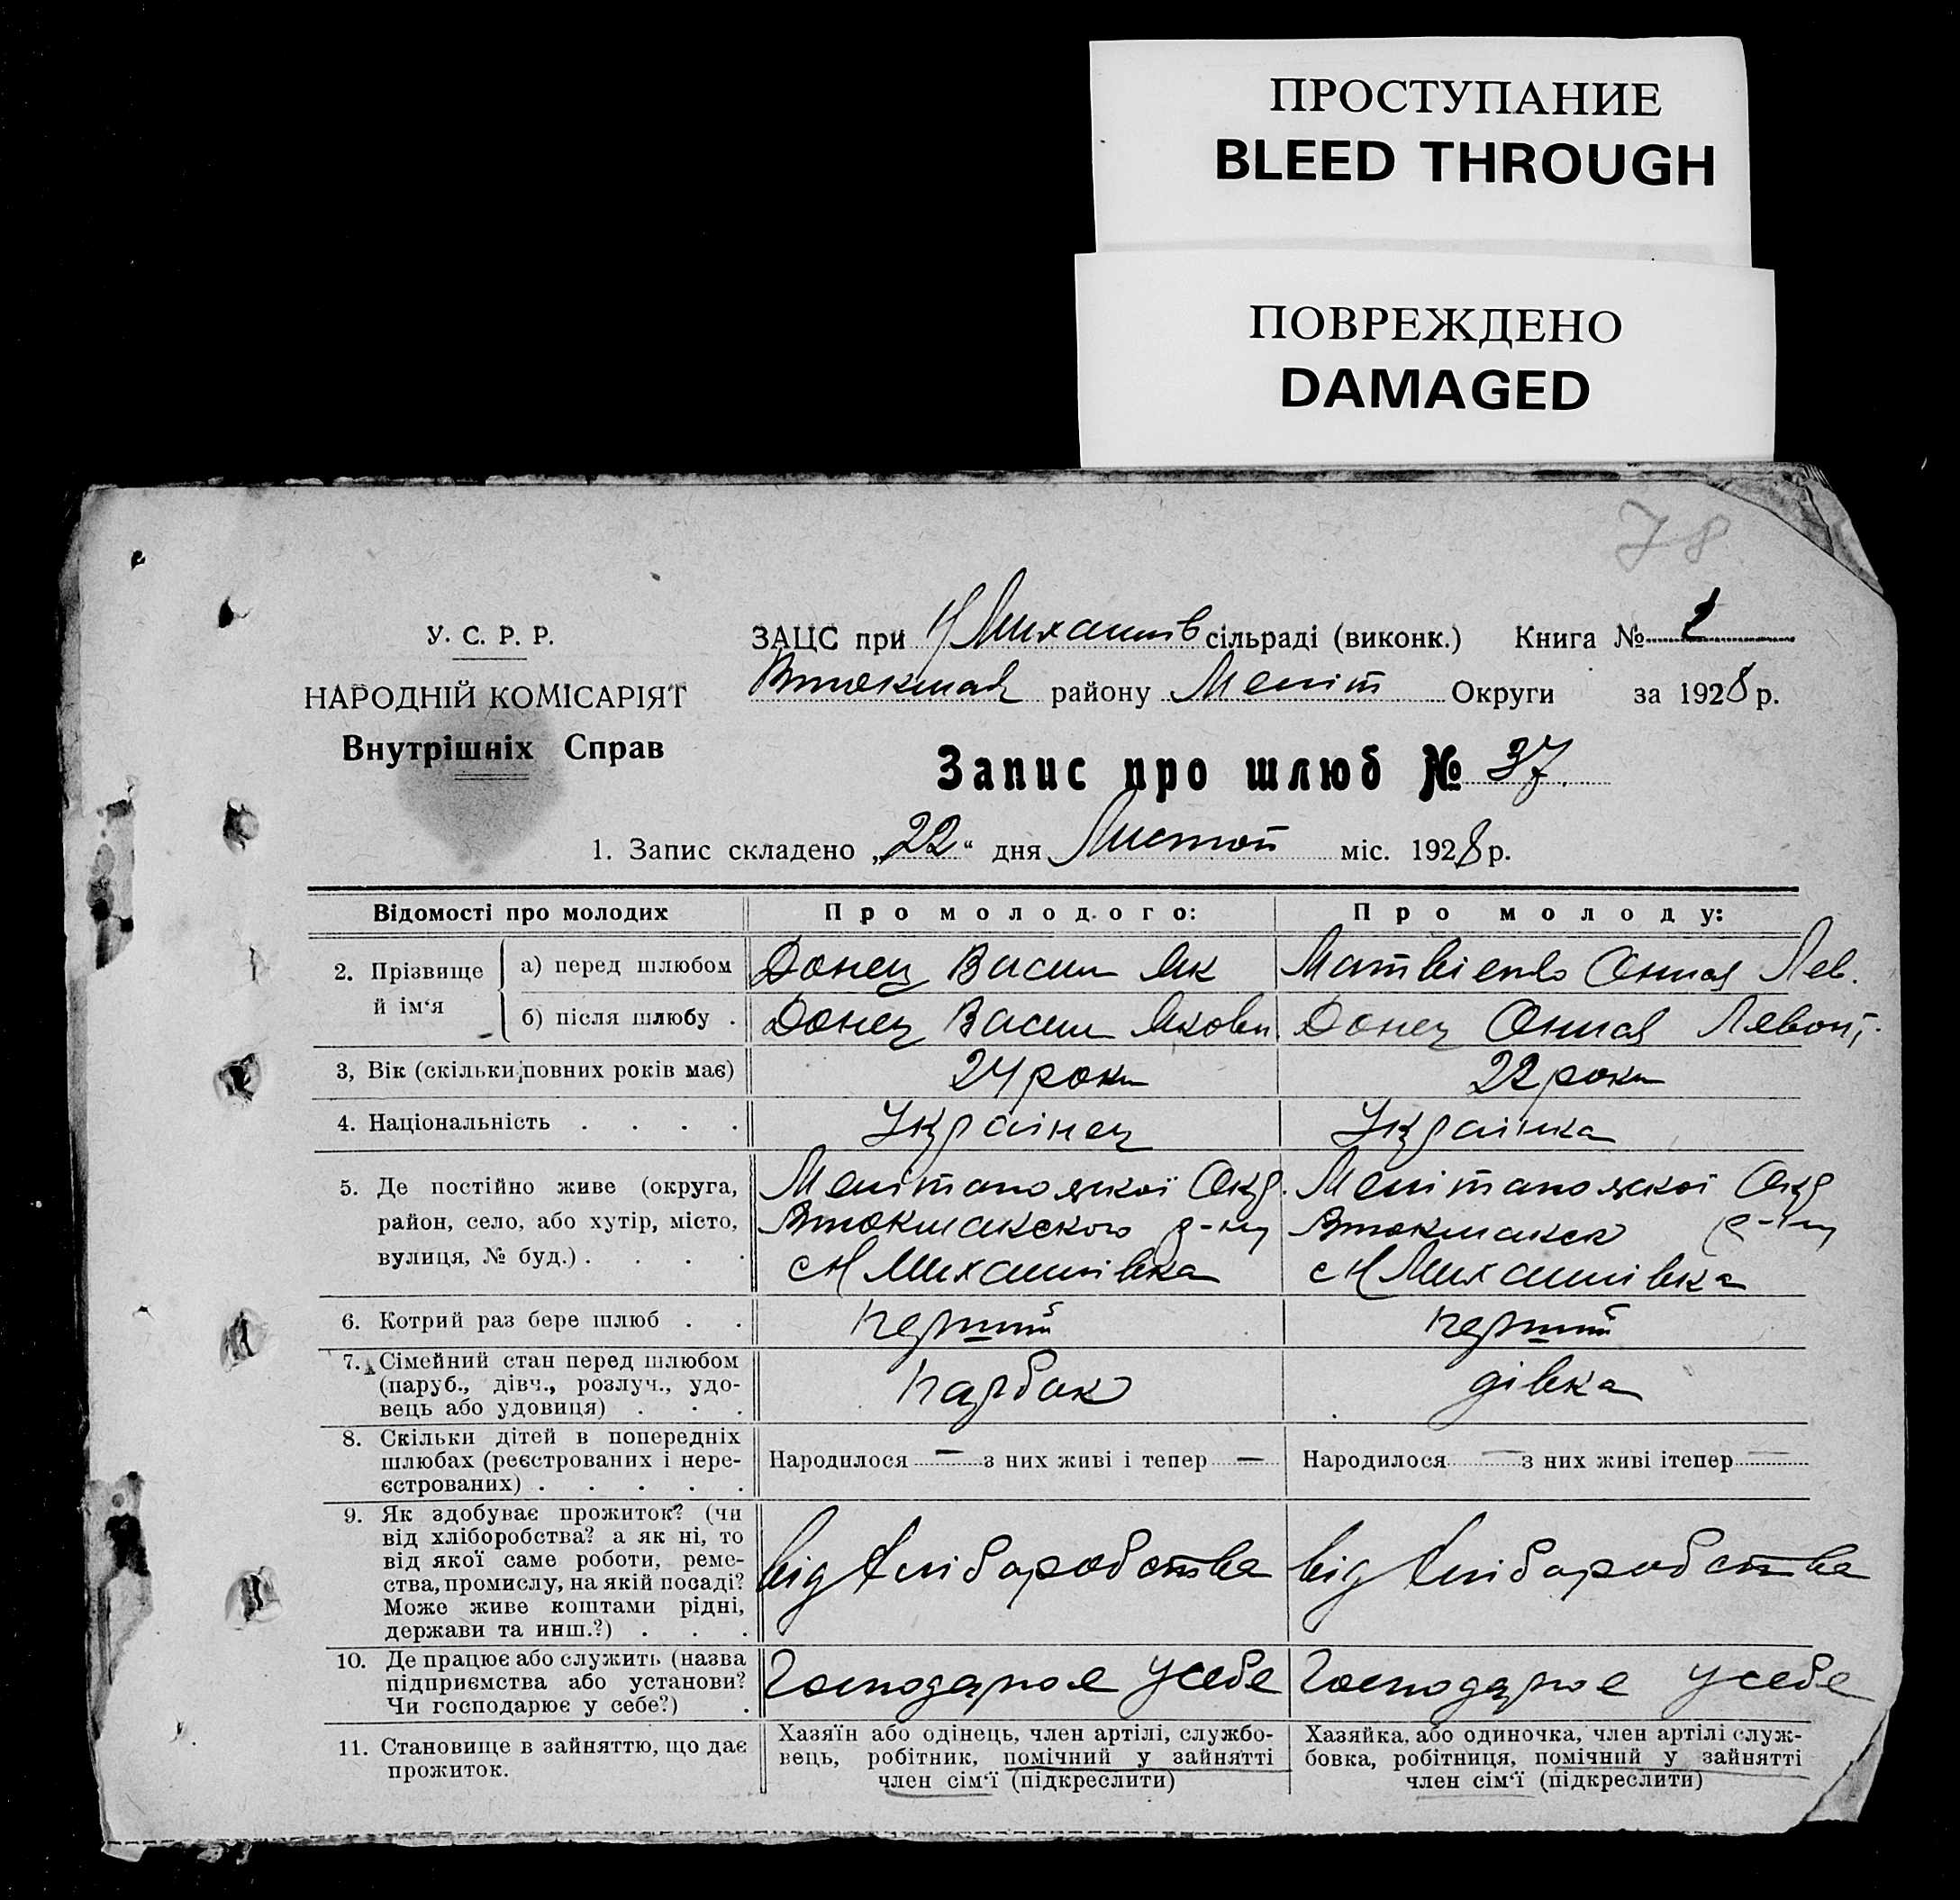 ПРОСТУПАНИЕ
BLEED THROUGH
ПОВРЕЖДЕНО
DAMAGED
78
У. С. Р. Р.
НАРОДНІЙ КОМІСАРІЯТ
Внутрішніх Справ
ЗАЦС при Н Михайлів сільраді (виконк.) Книга № 1
Втокмац району Меліт Округи за 1928 р.
Запис про шлюб № 37
1. Запис складено „22“ дня Листоп міс. 1928 р.
Відомості про молодих Про молодого: Про молоду:
2. Прізвище й ім‘я
а) перед шлюбом Донец Васил Як Матвієнко Онися Лев.
б) після шлюбу . Донец Васил Якови Донец Онися Левонт.
3, Вік (скільки повних років має) 24 роки 22 роки
4. Національність . . . . Українец Українка
5. Де постійно живе (округа,
район, село, або хутір, місто,
вулиця, № буд.) . . . .
Мелітопольскої Окр.
Втокмакского р-ну
с Н Михайлівка
Мелітопольскої Окр
Втокмакск р-ну
с Н Михайлівка
6. Котрий раз бере шлюб . . перший перший
7. Сімейний стан перед шлюбом
(паруб., дівч., розлуч., удо-
вець або удовиця) . . .
парубок дівка
8. Скільки дітей в попередніх
шлюбах (реєстрованих і нере-
єстрованих) . . . . .
Народилося — з них живі і тепер —
Народилося — з них живі ітепер —
9. Як здобуває прожиток? (чи
від хліборобства? а як ні, то
від якої саме роботи, реме-
ства, промислу, на якій посаді?
Може живе коштами рідні,
держави та инш.?) . . .
від хліборобства від хліборобства
10. Де працює або служить (назва
підприємства або установи?
Чи господарює у себе?) .
Господарює у себе Господарює у себе
11. Становище в зайняттю, що дає
прожиток.
Хазяїн або одінець, член артілі, службо-
вець, робітник, помічний у зайнятті
член сім‘ї (підкреслити)
Хазяйка, або одиночка, член артілі служ-
бовка, робітниця, помічний у зайнятті
член сім‘ї (підкреслити)